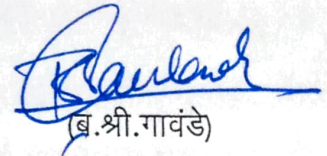 (ब.श्री.गावंडे)